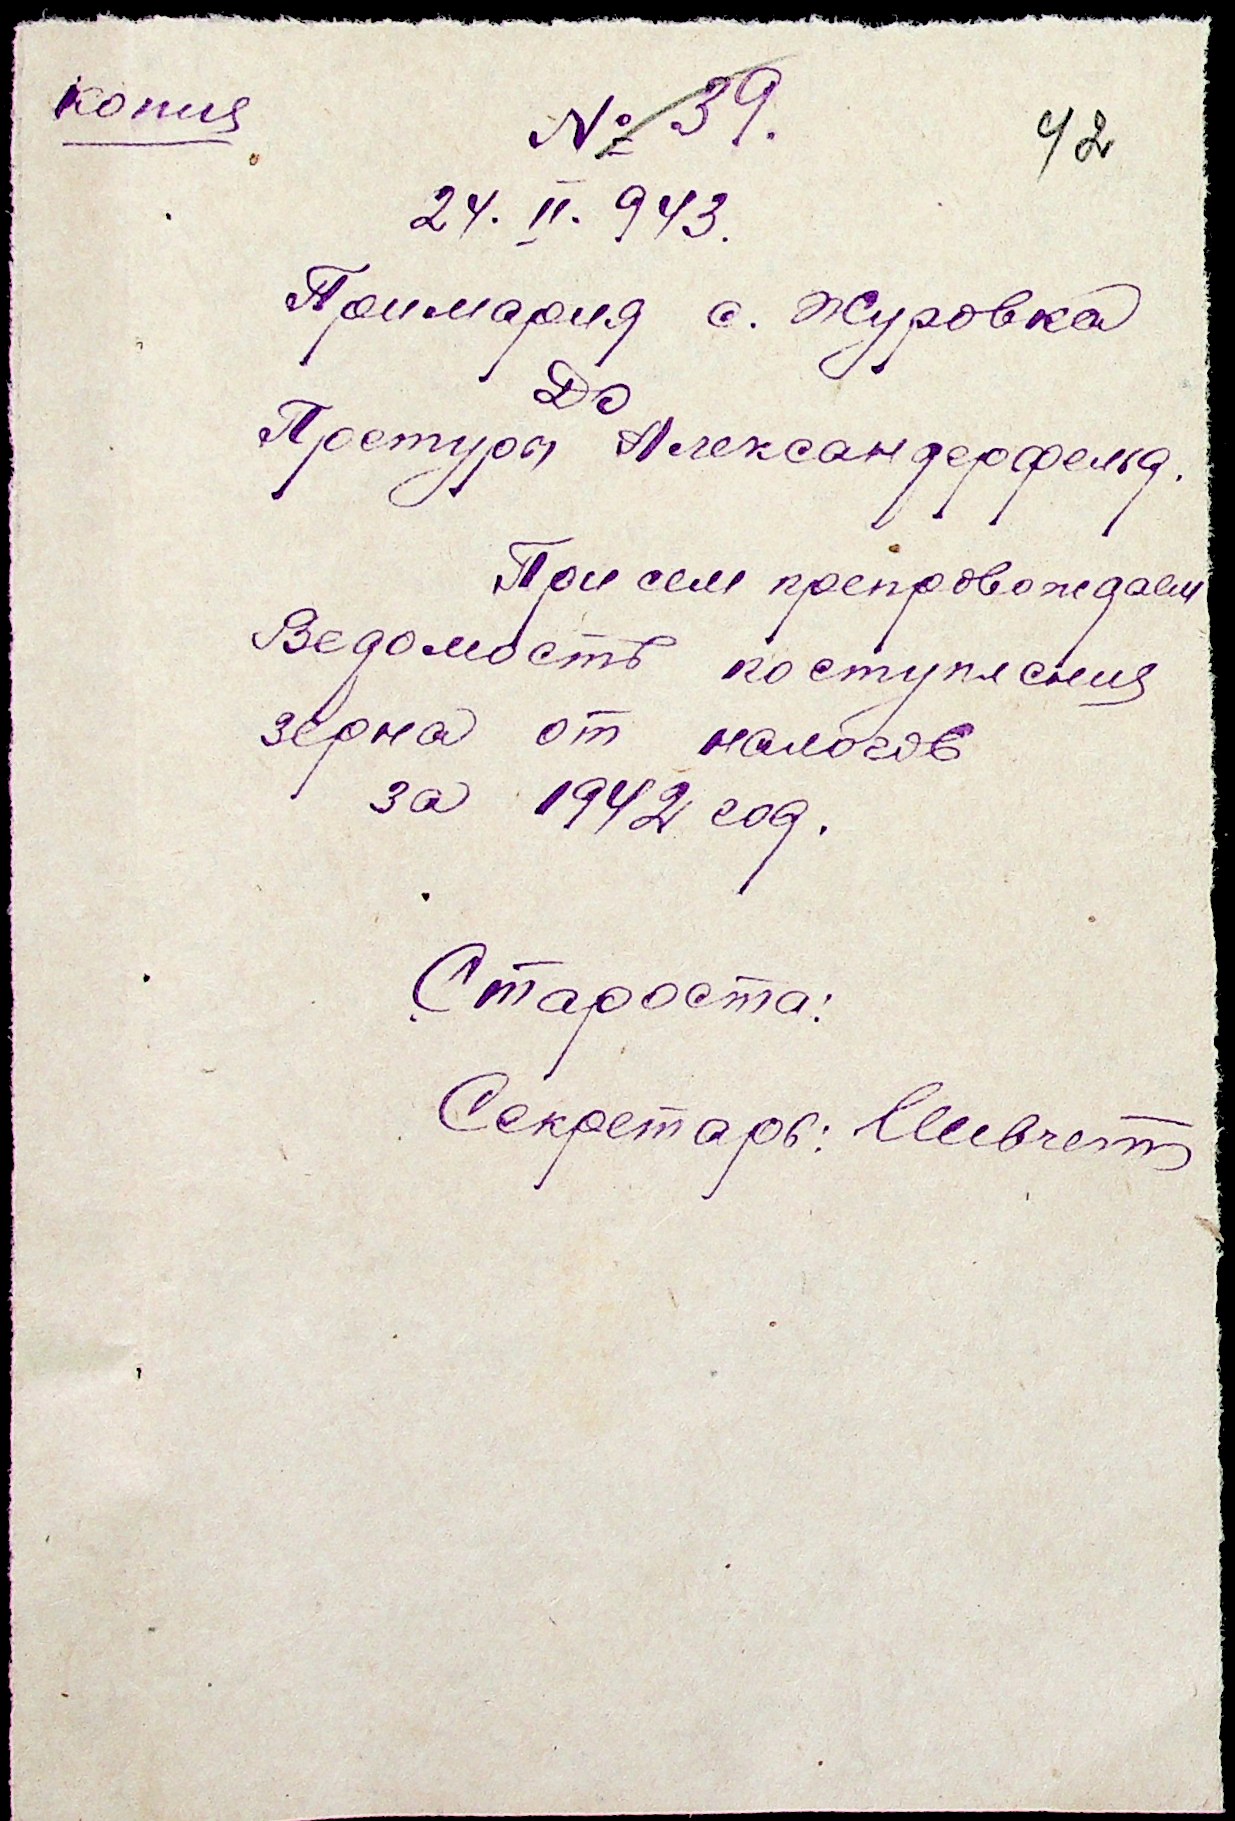 копия
№ 39.
42
24. II. 943.
Примария с. Журовка
До
Претуры Александерфельд.
При сем препровождаем
Ведомость поступления
зерна от налогов
за 1942 год.
Староста:
Секретарь: